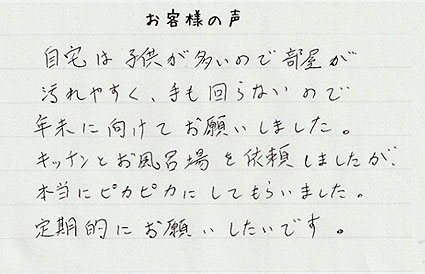 お客様の声
自宅は子供が多いので部屋が
汚れやすく、手も回らないので
年末に向けてお願いしました。
キッチンとお風呂場を依頼しましたが、
本当にピカピカにしてもらいました。
定期的にお願いしたいです。